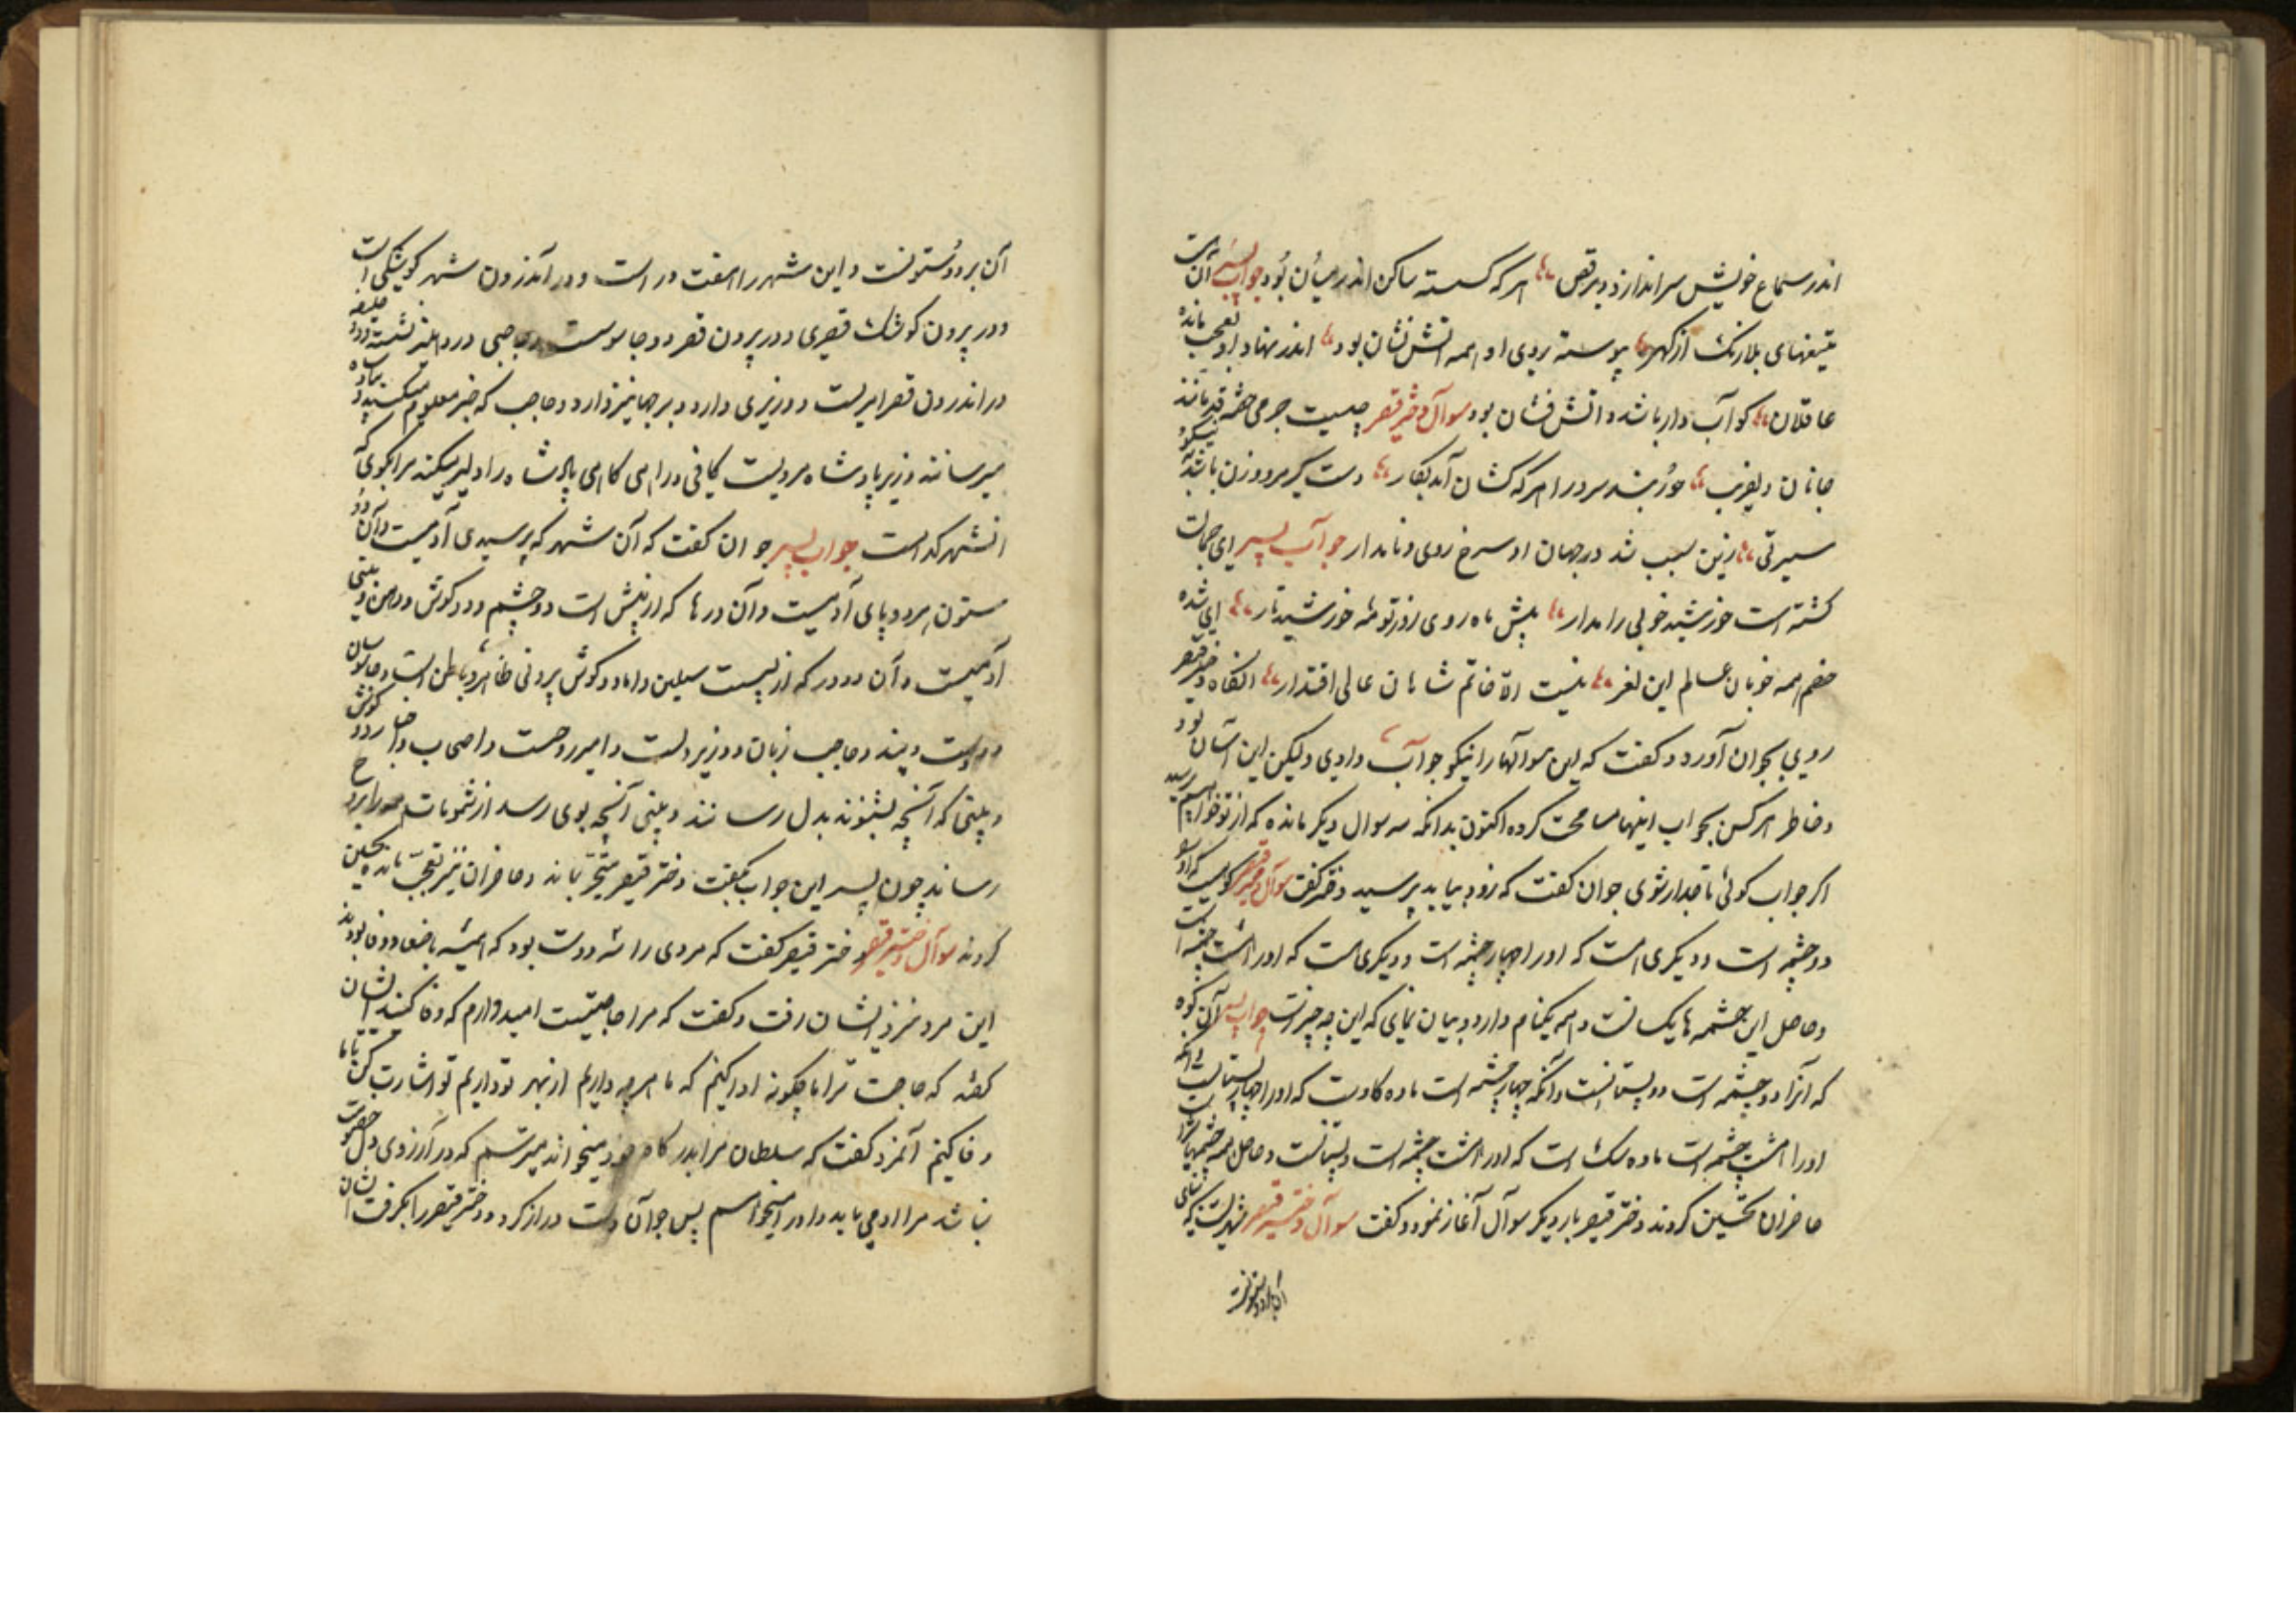 اندر سماع خویش سراندازد برقص هر که گسسته ساکن اندر میان بود جواب پسر آن
تیغهای بلارنک از کهر پیوسته بروی او همه اتش نشان بود اندر نهاد او تعجب مانده
عاقلان کو آب دار باشد و اتش فشان بود سوآل دختر قیصر چیست جرمی
جانان دلفریب خورشید سر در هر که کشان آمد بکار دست گیر مرد و زن باشد
سیرتی زین سبب شد در جهان او سرخ روی و نامدار جوآب پسر ای جمالت
کشته است خورشید خوبی را مدار پیش ماه روی تو خورشید تار ای شده
خصم همه خوبان عالم این لغز نیست الا خاتم شاهان عالی اقتدار انکاه دختر قیصر
روی بجوان آورد و کفت که این سوالهارا نیکو جوآب دادی ولیکن این آسان بود
و خاطر هرکس بجواب اینها مسامحت کرده اکنون بدانکه سه سوال دیکر مانده که از تو خواهم پرسید
اکر جواب کوئی تاجدار شوی جوان کفت که زود بیاید پرسید دختر کفت سوآل دختر قیصر کوهیست که اورا
دو چشمه است و دیکری است که اورا چهار چشمه است و دیکری است که اورا هشت چشمه است
و حاصل این چشمه ها یکسانست و همه یکنام دارد و بیان نمای که این چه چیزست جواب پسر آن کوه
که آنرا دو چشمه است دو پستانست و آنکه چهار چشمه است ماده کاوست که اورا چهار پستانست و آنکه
اورا هشت چشمه است ماده سک است که اورا هشت چشمه است و پستانست و حاصل همه چشمها شیر است
حاضران تحسین کردند دختر قیصر بار دیکر سوآل آغاز نمود و کفت سوآل دختر قیصر شهریست که بنای
آن بر دو ستونست
آن بر دو ستونست و این شهر را هفت در است و در آندرون شهر کوشکی است
و در بیرون کوشک قیصری و در بیرون قصر دو جاسوست و حاجبی در دهلیز نشسته و دو
در اندرون قصر امیریست و وزیری دارد و حاجب که خبر معلوم میکند
میرسانند و وزیر پادشاه مردیست کافی در همه کاری پادشاه را دلیر میکند مرا بکوی که
انشهر کدامست جواب پسر جوان کفت که آن شهر که پرسیدی آدمیست و آن دو
ستون هر دو پای آدمیست و آن درها که از پیش است دو چشم و دو کوش و دهن و بینی
آدمیست و آن دو در که از پیست سبیلین و اما دو کوش بیرونی ظاهر و باطن است و جاسوسان
دو دست و حاجب زبان و وزیر دلست و امیر روحست و اصحاب
و بینی که آنچه بشنوند بدل رسانند و بینی آنچه بوی رسد از شمومات
رساند چون پسر این جواب بکفت دختر قیصر متحیر بماند و حاضران نیز تعجب مانده تحسین
کردند سوآل دختر قیصر دختر قیصر کفت که مردی را سه دوست بود که همیشه با صفا و وفا بودند
این مرد نزد ایشان رفت و کفت که مرا حاجتیست امید دارم که وفا کنید ایشان
کفتند که حاجت ترا ما چکونه ادا کنیم که ما هر چه داریم از بهر تو داریم تو اشارت کن تا ما
وفا کنیم آنمرد کفت که سلطان مرا بدرکاه خود میخواند میترسم که در آرزوی دل
نباشد مرا می باید و اورا میخواهم پس جوآن دست دراز کرد و دختر قیصر را بکرفت ایشان